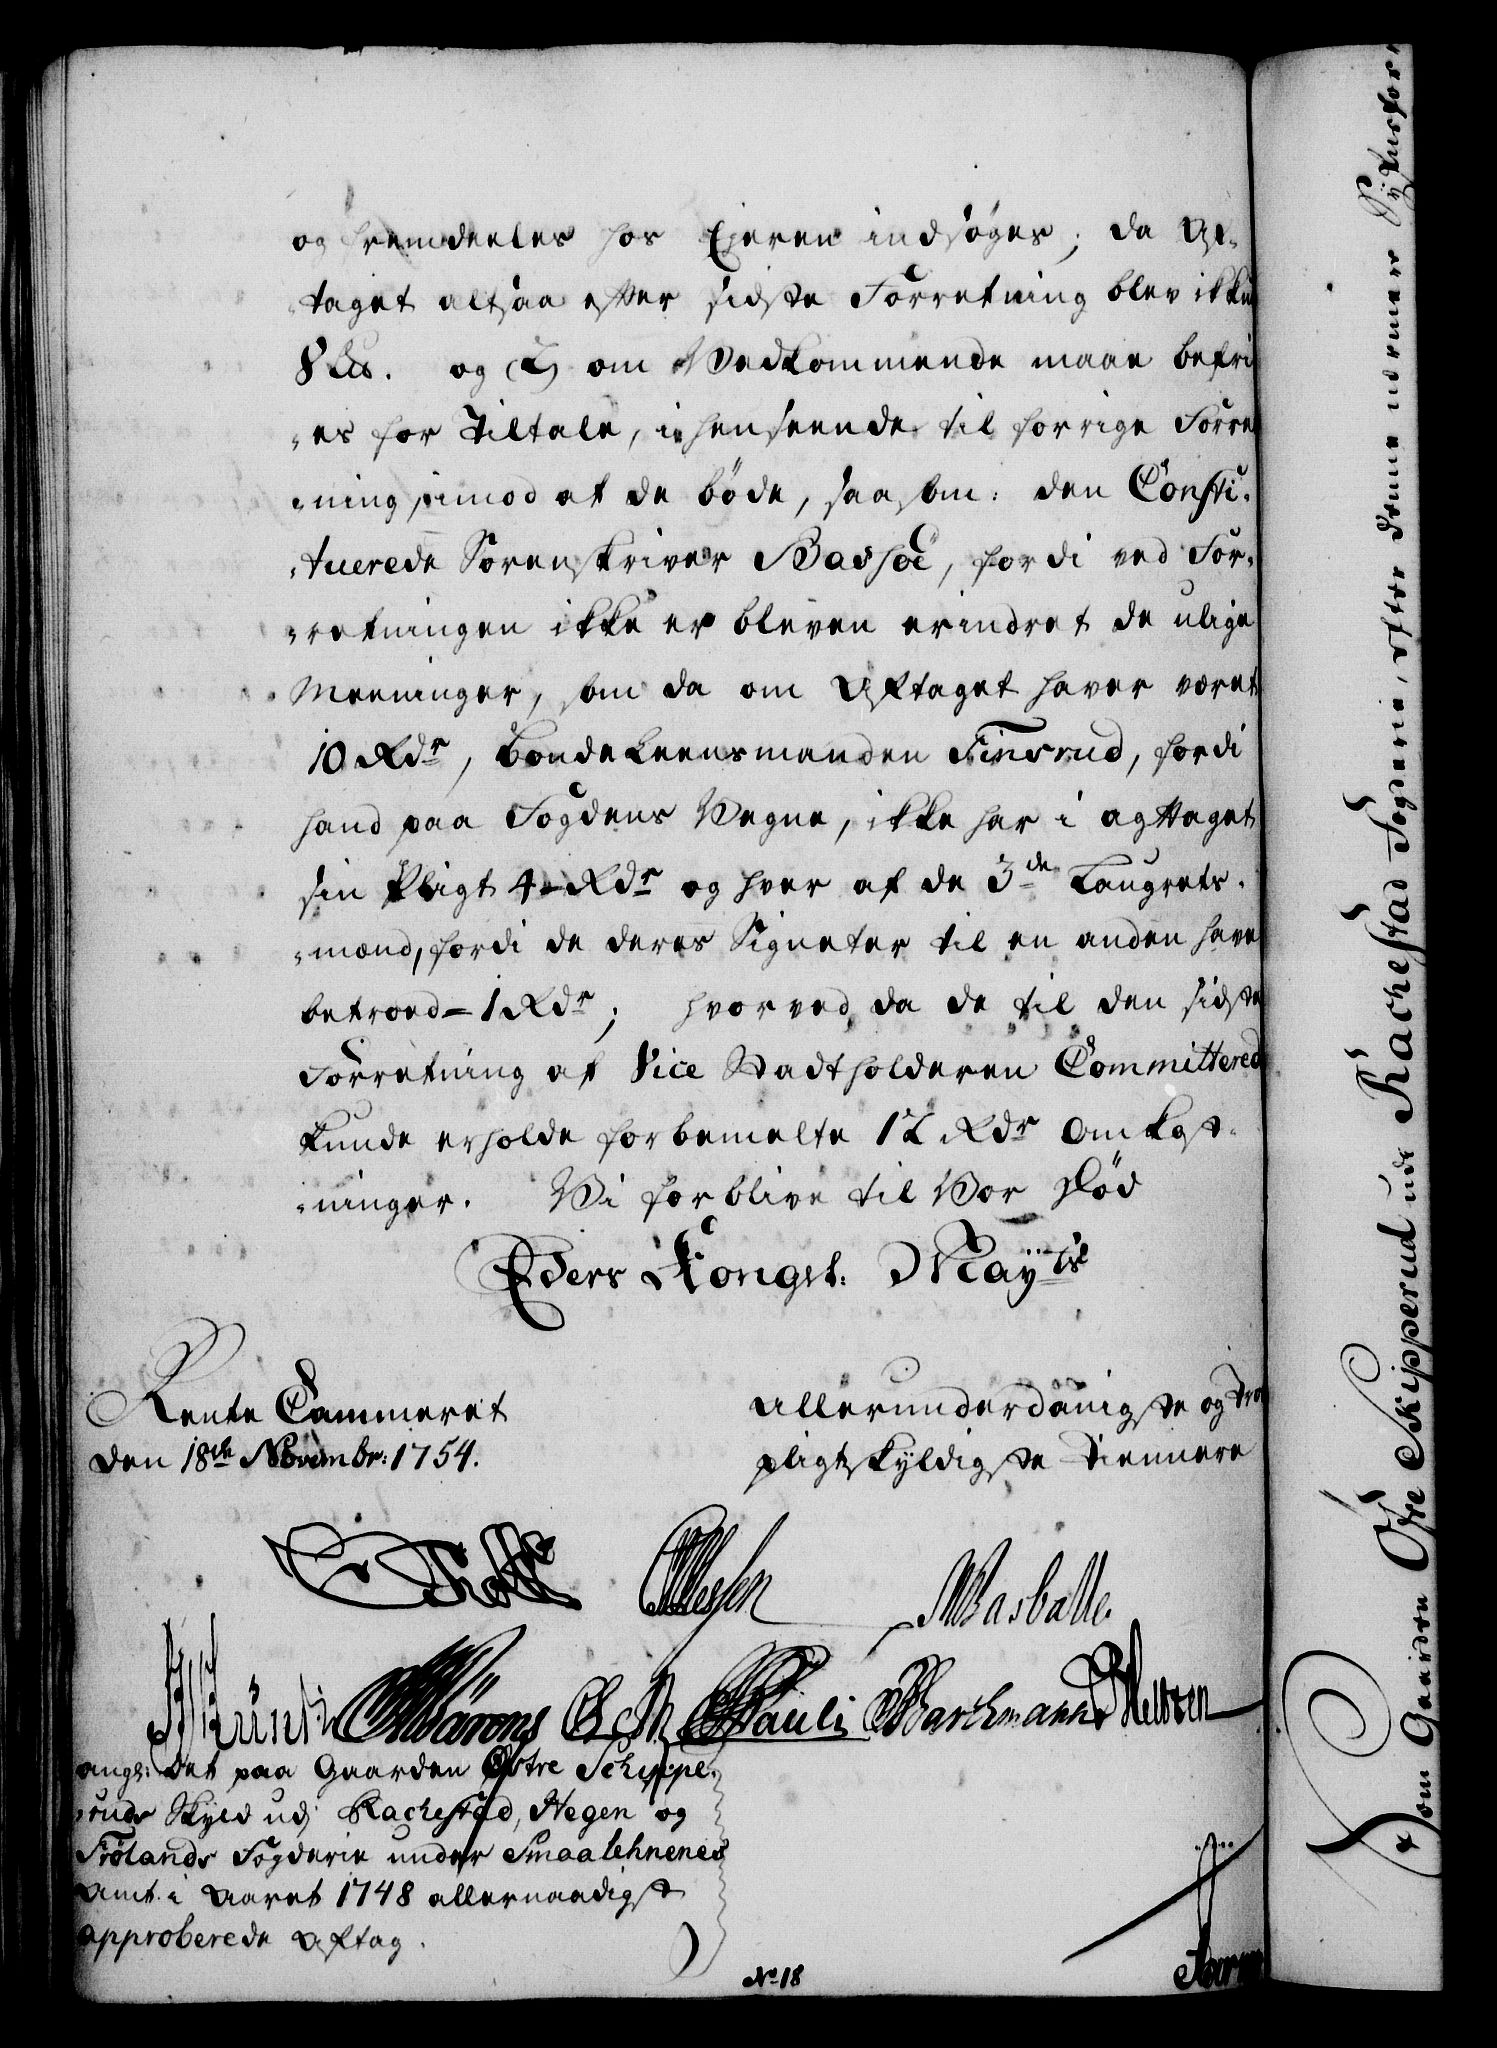 og fremdeeles hos Ejeren indsöges; da Af-
-taget altsaa efter sidste Forretning blev ikkun
8 Lis. og 2) om Vedkommende maae befri
-es for Tiltale, i henseende til forrige Forret
-ning, imod at de böde, saasom: den Consti-
-tuerede Sorenskriver Basshoe, fordi ved For-
-retningen ikke er bleven erindret de ulige
Meeninger, som da om Aftaget haver været
10 Rdr, Bonde Leensmanden Finsrud, fordi
hand paa Fogdens Vegne, ikke har i agttaget
sin Pligt 4 Rdr og hver af de 3de Laugrets-
-mænd, fordi de deres Signeter til en anden have
betroed - 1 Rdr; hvorved da de til den sidste
Forretning af Vice Stadtholderen Committered
kunde erholde forbemelte 12 Rdr Omkost-
-ninger. Vi forblive til Vor Död
Eders Kongel: Mayts
Rente Cammeret
den 18de Novembr: 1754.
Allerunderdanigste og Troe
pligtskyldigste Tiennere
Holst
MBasballe.
Pauli Barthmann
ang: Det paa Gaarden Östre Schippe-
-ruds Skyld udj Rachestad, Hegen og
Frölands Fogderie under Smaalehnenes
Amt i Aaret 1748 allernaadigst
approberede Aftag.
No 18
Som Gaarden Östre Skipperud udi Rachestad Fogderie, efter denne nærmere Sÿkursfor